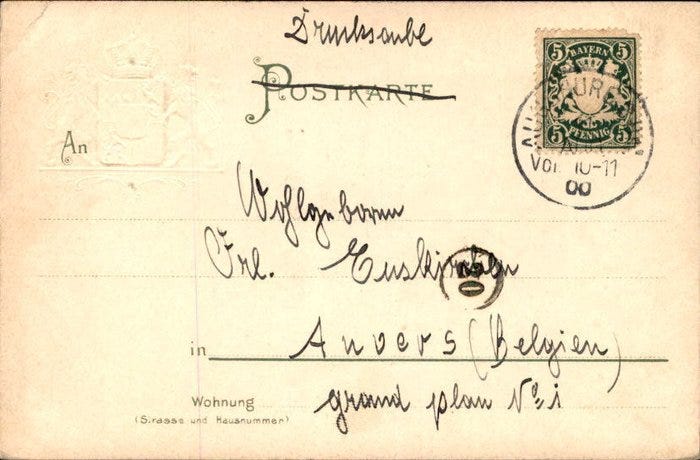 Drucksache
POSTKARTE
5 BAYERN 5
5 PFENNIG 5
Vor. 10-11
00
An
Wohlgeboren
Frl. Euskirchen
in Anvers (Belgien)
Wohnung grand plan No 1
(Strasse und Hausnummer)